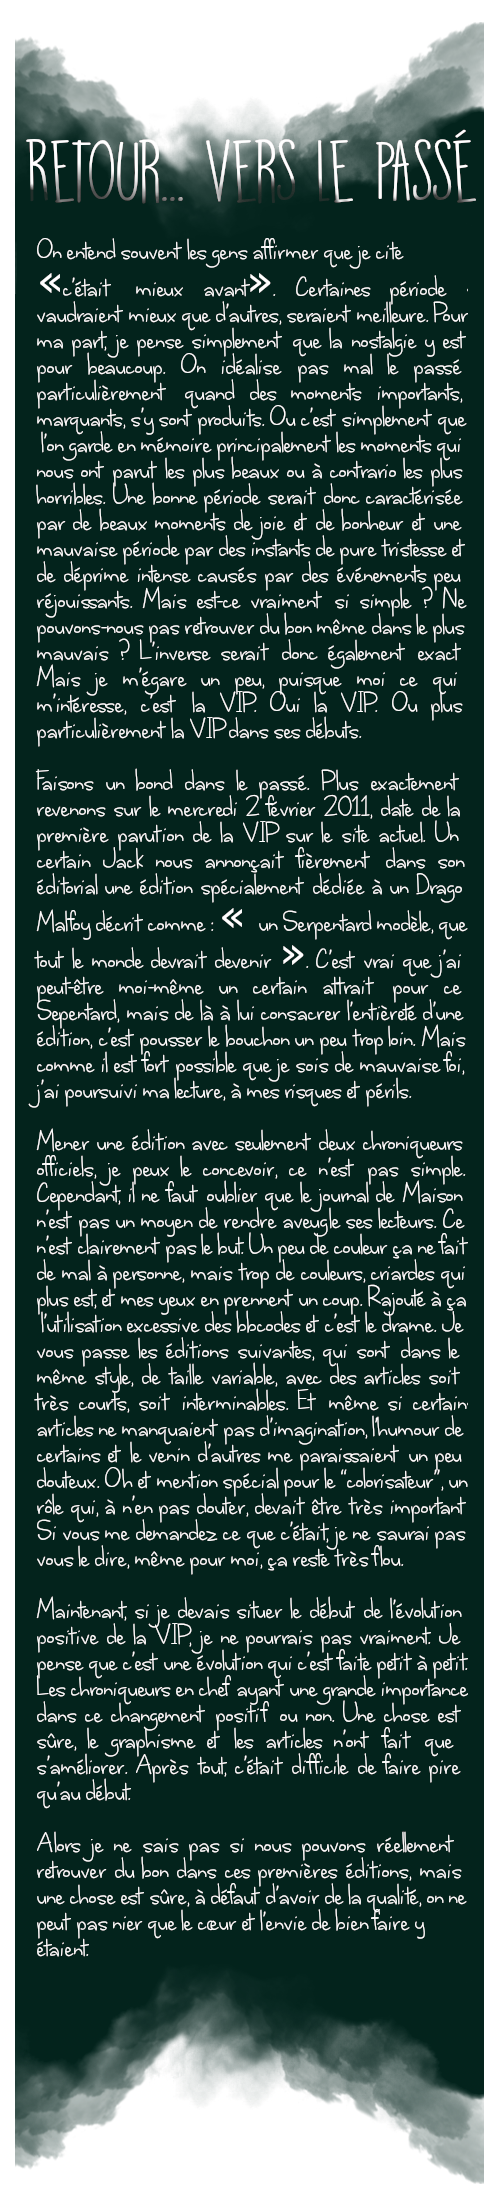 RETOUR... VERS LE PASSÉ
On entend souvent les gens affirmer que je cite
«c'était mieux avant». Certaines période
vaudraient mieux que d'autres, seraient meilleure. Pour
ma part, je pense simplement que la nostalgie y est
pour beaucoup. On idéalise pas mal le passé
particulièrement quand des moments importants,
marquants, s'y sont produits. Ou c'est simplement que
l'on garde en mémoire principalement les moments qui
nous ont parut les plus beaux ou à contrario les plus
horribles. Une bonne période serait donc caractérisée
par de beaux moments de joie et de bonheur et une
mauvaise période par des instants de pure tristesse et
de déprime intense causés par des événements peu
réjouissants. Mais est-ce vraiment si simple ? Ne
pouvons-nous pas retrouver du bon même dans le plus
mauvais ? L'inverse serait donc également exact
Mais je m'égare un peu, puisque moi ce qui
m'intéresse, c'est la VIP. Oui la VIP. Ou plus
particulièrement la VIP dans ses débuts.
Faisons un bond dans le passé. Plus exactement
revenons sur le mercredi 2 février 2011, date de la
première parution de la VIP sur le site actuel. Un
certain Jack nous annonçait fièrement dans son
éditorial une édition spécialement dédiée à un Drago
Malfoy décrit comme : « un Serpentard modèle, que
tout le monde devrait devenir ». C'est vrai que j'ai
peut-être moi-même un certain attrait pour ce
Sepentard, mais de là à lui consacrer l'entièreté d'une
édition, c'est pousser le bouchon un peu trop loin. Mais
comme il est fort possible que je sois de mauvaise foi,
j'ai poursuivi ma lecture, à mes risques et périls.
Mener une édition avec seulement deux chroniqueurs
officiels, je peux le concevoir, ce n'est pas simple.
Cependant, il ne faut oublier que le journal de Maison
n'est pas un moyen de rendre aveugle ses lecteurs. Ce
n'est clairement pas le but. Un peu de couleur ça ne fait
de mal à personne, mais trop de couleurs, criardes qui
plus est, et mes yeux en prennent un coup. Rajouté à ça
l'utilisation excessive des bbcodes et c'est le drame. Je
vous passe les éditions suivantes, qui sont dans le
même style, de taille variable, avec des articles soit
très courts, soit interminables. Et même si certain
articles ne manquaient pas d'imagination, l'humour de
certains et le venin d'autres me paraissaient un peu
douteux. Oh et mention spécial pour le "colorisateur", un
rôle qui, à n'en pas douter, devait être très important
Si vous me demandez ce que c'était, je ne saurai pas
vous le dire, même pour moi, ça reste très flou.
Maintenant, si je devais situer le début de l'évolution
positive de la VIP, je ne pourrais pas vraiment. Je
pense que c'est une évolution qui c'est faite petit à petit.
Les chroniqueurs en chef ayant une grande importance
dans ce changement positif ou non. Une chose est
sûre, le graphisme et les articles n'ont fait que
s'améliorer. Après tout, c'était difficile de faire pire
qu'au début.
Alors je ne sais pas si nous pouvons réellement
retrouver du bon dans ces premières éditions, mais
une chose est sûre, à défaut d'avoir de la qualité, on ne
peut pas nier que le cœur et l'envie de bien faire y
étaient.